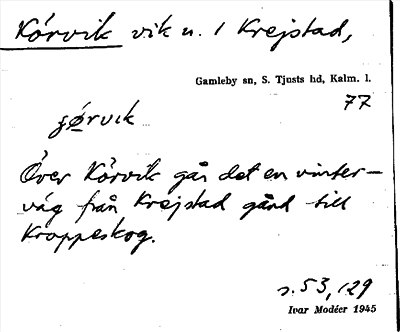 Kórvik vik u. / Krejstad,
Gamleby sn, S. Tjusts hd, Kalm. l.
77
Över Kórvik går det en vinter-
väg från Krejstad gård till
Kroppeskog.
s. 53, 129
Ivar Modéer 1945